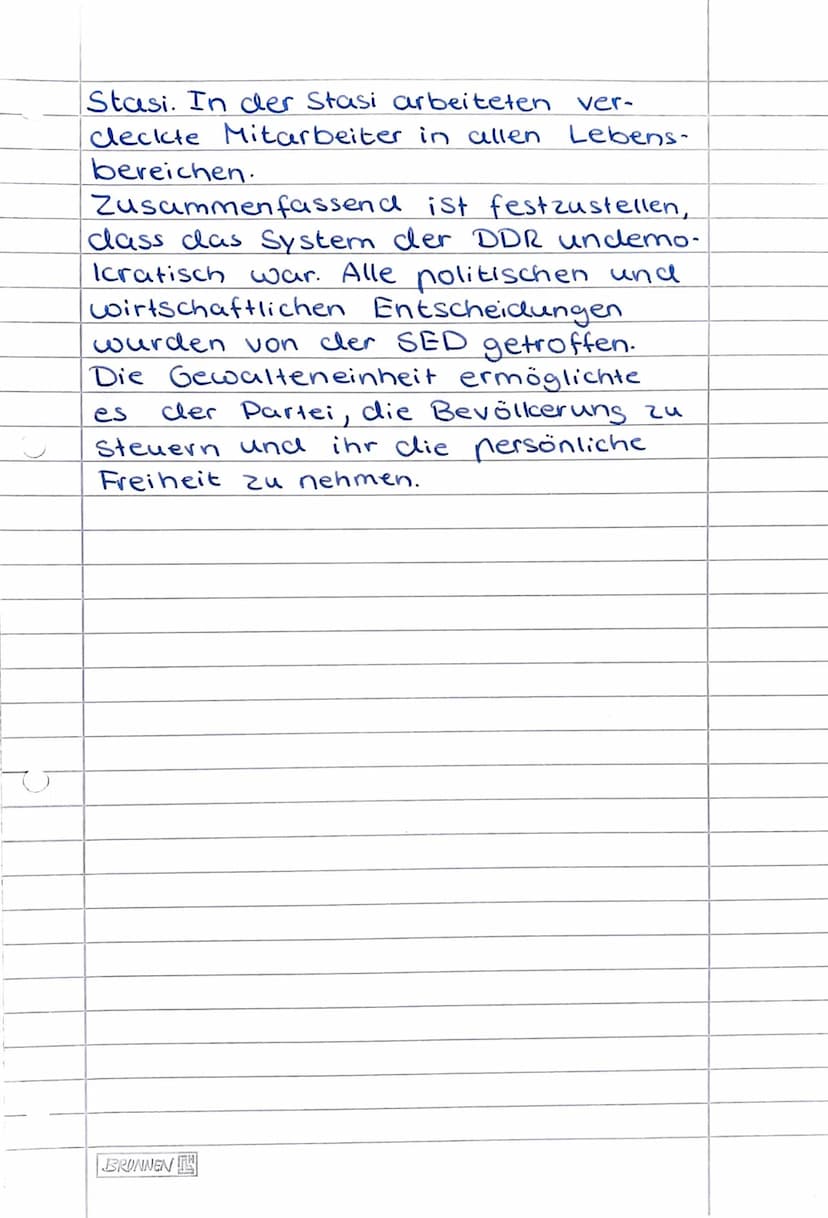 Stasi. In der Stasi arbeiteten ver-
deckte Mitarbeiter in allen Lebens-
bereichen.
Zusammenfassend ist festzustellen,
dass das System der DDR undemo-
kratisch war. Alle politischen und
wirtschaftlichen Entscheidungen
wurden von der SED getroffen.
Die Gewalteneinheit ermöglichte
es der Partei, die Bevölkerung zu
steuern und ihr die persönliche
Freiheit zu nehmen.
BRUNNEN